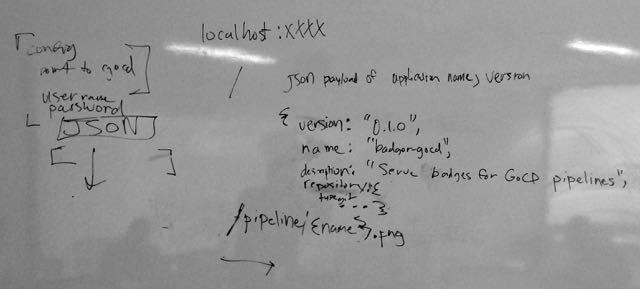 config
point to gocd
username
password
JSON
localhost:XXXX
/
json payload of application name, version
{ version: "0.1.0",
name: "badger-gocd",
description: "Serve badges for GoCD pipelines",
repository: {
type: git
... },
/pipeline/{name}.png